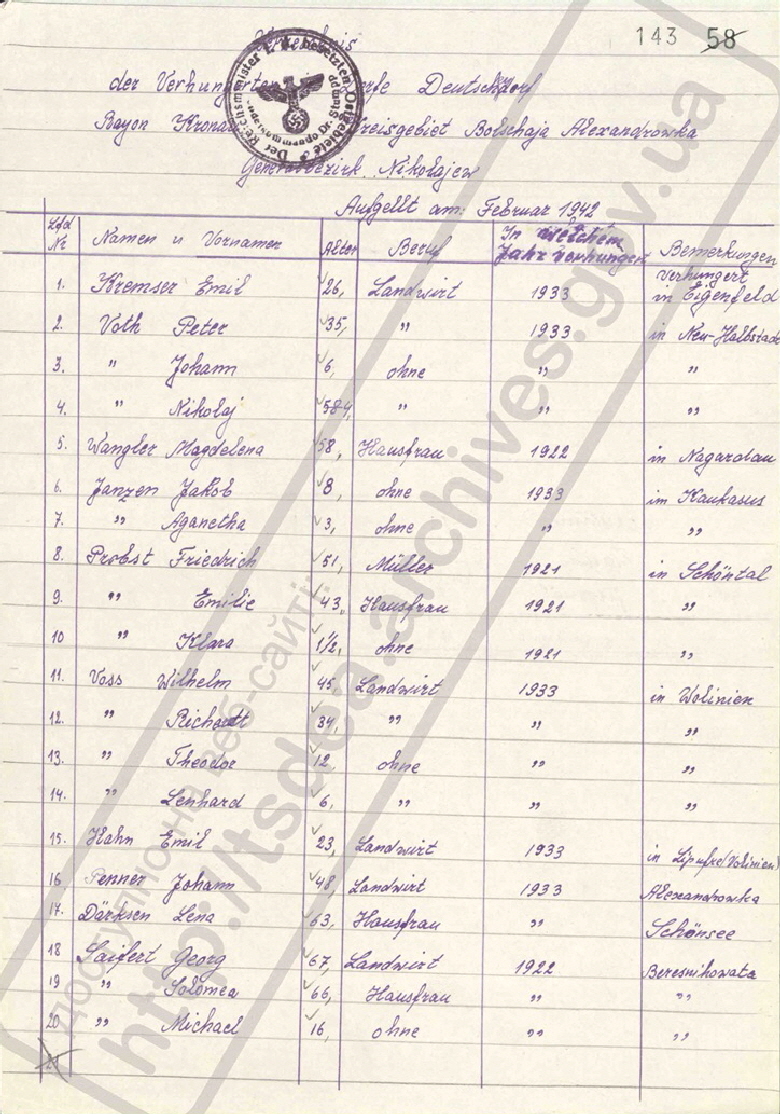 143 58
Verzeichnis
der Verhungerten Dorfe Deutschdorf
Rayon Kronau Kreisgebiet Bolschaja Alexandrowka
Generalbezirk Nikolajew
Aufgellt am: Februar 1942
Lfd Nr Namen u Vornamen Alter Beruf In welchem Jahr verhungert Bemerkungen
1. Kremser Emil 26, Landwirt 1933 verhungert in Eigenfeld
2. Voth Peter 35, " 1933 in Neu-Halbstadt
3. " Johann 6, ohne " "
4. " Nikolaj 4, " " "
5. Wangler Magdelena 58, Hausfrau 1922 in Nagardau
6. Janzen Jakob 8, ohne 1933 im Kaukasus
7. " Aganetha 3, ohne " "
8. Probst Friedrich 51, Müller 1921 in Schöntal
9. " Emilie 43, Hausfrau 1921 "
10 " Klara 1½, ohne 1921 "
11. Voss Wilhelm 45, Landwirt 1933 in Wolinien
12. " Richardt 34, " " "
13. " Theodor 12, ohne " "
14. " Lenhard 6, " " "
15. Hahn Emil 23, Landwirt 1933 in (Wolinien)
16 Penner Johann 48, Landwirt 1933 Alexandrowka
17. Därksen Lena 63, Hausfrau " Schönsee
18 Saifert Georg 67, Landwirt 1922 Beresnikowata
19 " Solomea 66, Hausfrau " "
20 " Michael 16, ohne " "
21
Der Reichsminister f. d. besetzten Ostgebiete
Dr. Stumpp
доступно на веб-сайті:
http://tsdea.archives.gov.ua